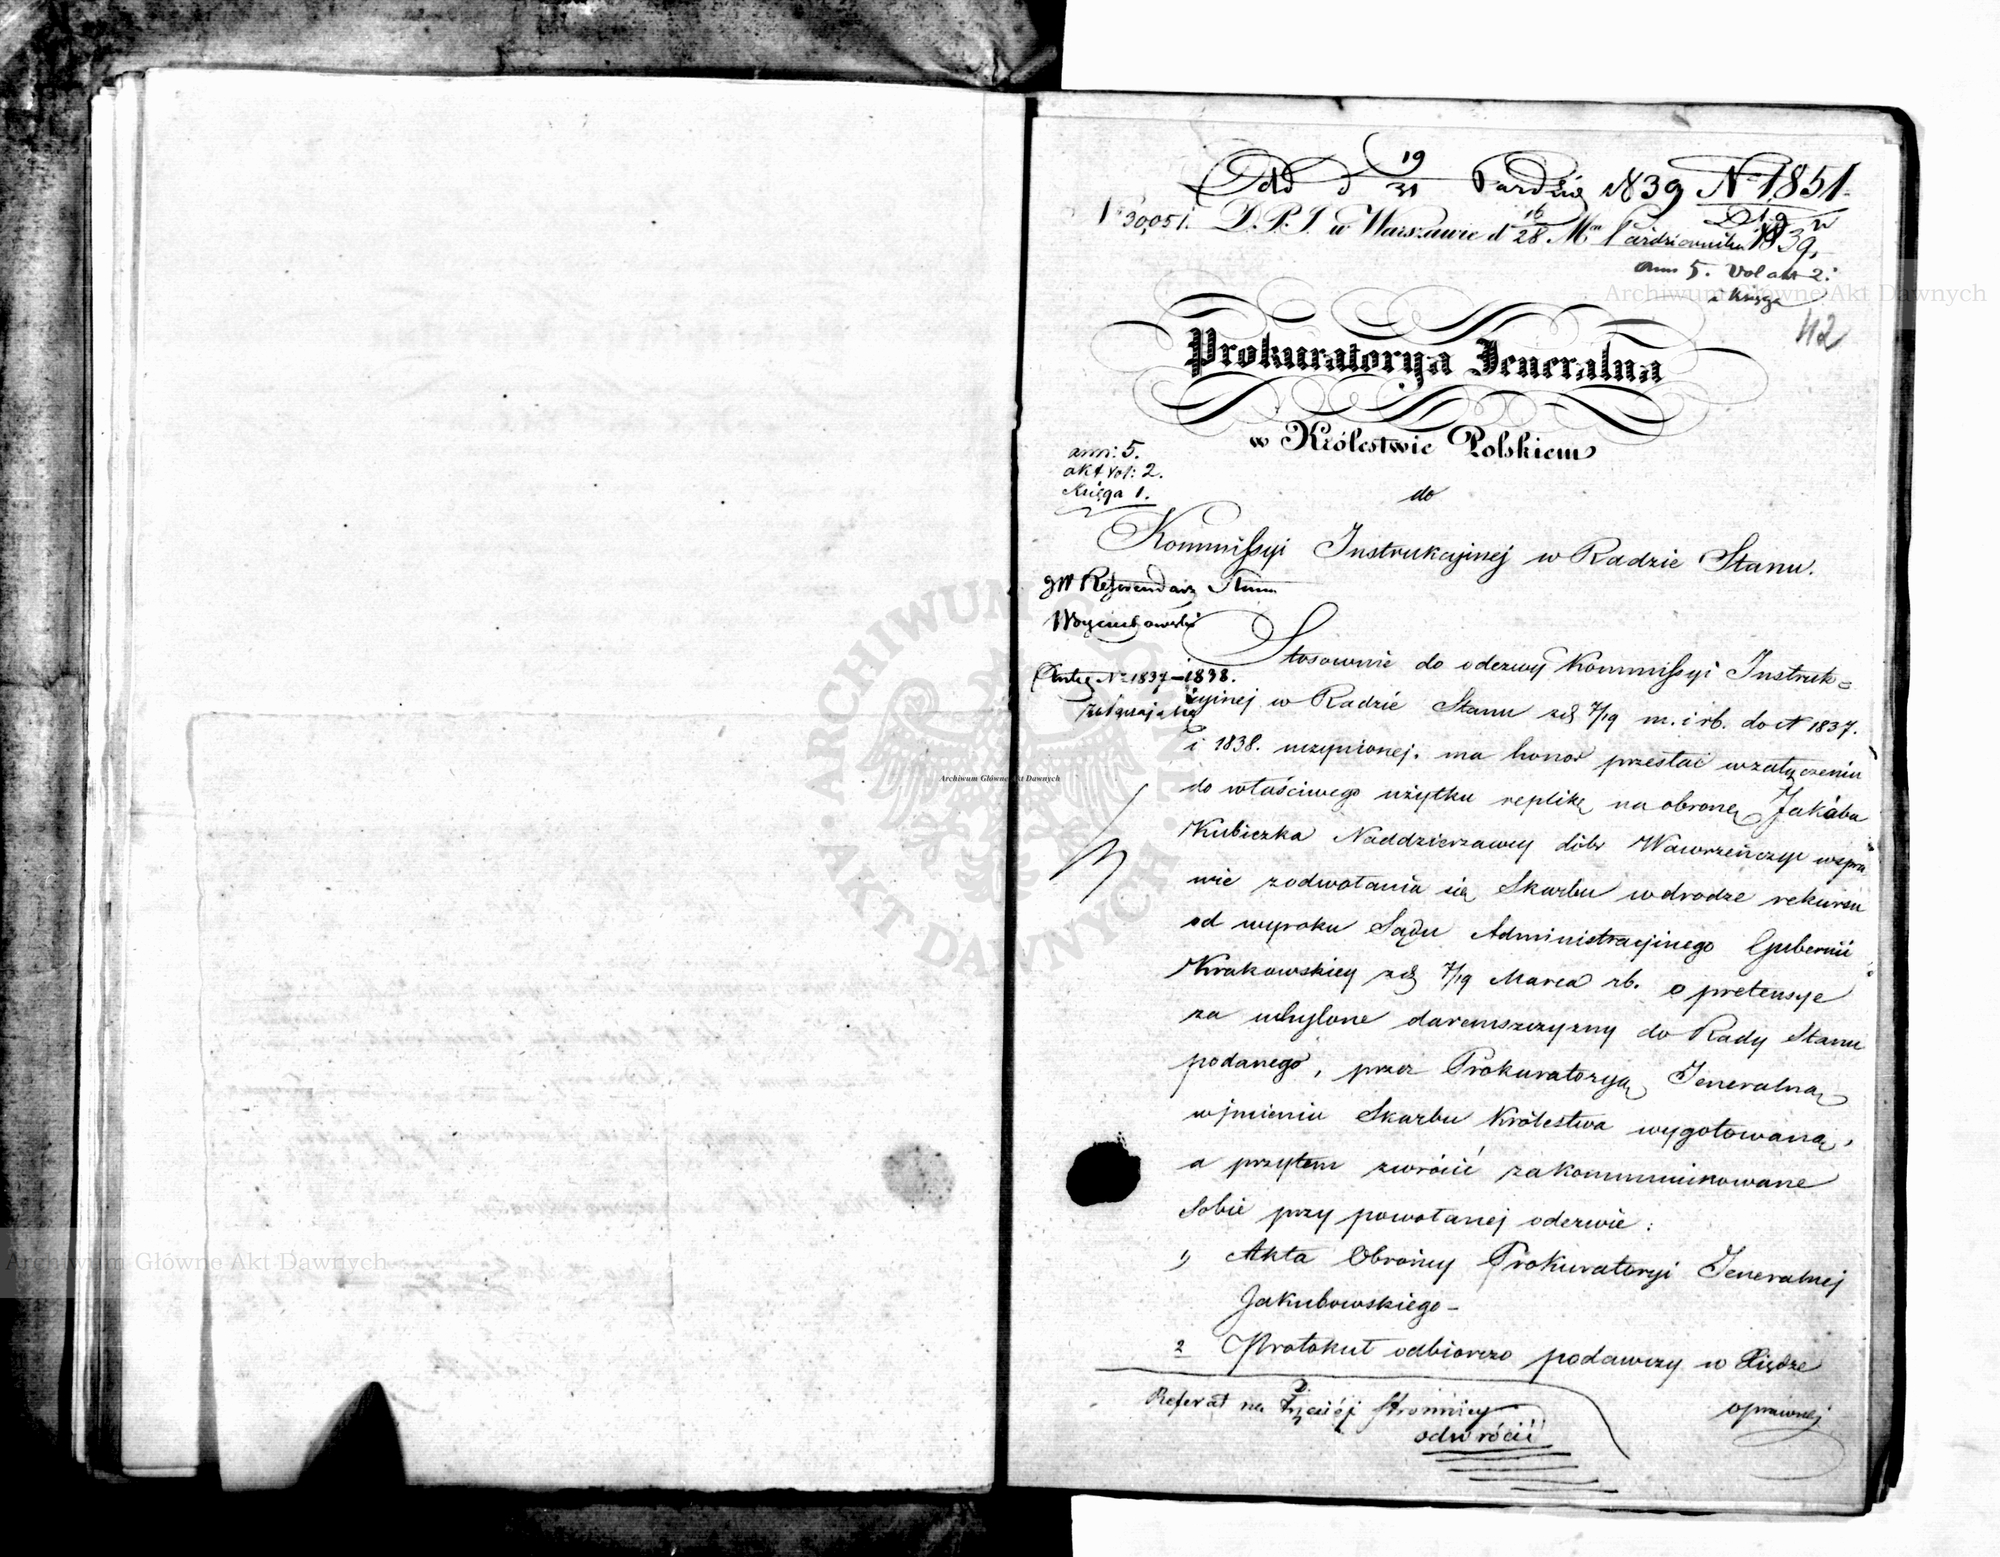 Odd d 19/31 Paździe 1839 N 1851.
N 30,051. D.P.I. w Warszawie d 16/28 Mca Października 1839,
Ann 5. Vol akt 2:
i Księga
42
Prokuratorya Jeneralna
w Królestwie Polskiem
ann: 5.
akt vol: 2.
Księga 1.
do
Kommissyi Instrukcyjnej w Radzie Stanu.
JW Referendarz Stanu
Woyciechowski
Stosownie do odezwy Kommissyi Instruk=
N 1837–1838.
cyjnej w Radzie Stanu z d. 7/19 m. i rb. do N 1837.
i 1838. uczynionej. ma honor przesłać w załączeniu
do właściwego użytku replikę na obronę Jakóba
Kubiczka Naddzierzawcy dóbr Wawrzeńczyc wspra
wie zodwołania się Skarbu w drodze rekursu
od wyroku Sądu Administracyjnego Gubernii
Krakowskiey z d. 7/19 Marca rb. o pretensye
za uchylone daremszczyzny do Rady Stanu
podanego, przez Prokuratoryą Jeneralną
w jmieniu Skarbu Królestwa wygotowaną,
a przytem zwrócić zakommunikowane
sobie przy powołanej odezwie:
1) Akta Obrońcy Prokuratoryi Jeneralnej
Jakubowskiego –
2 Protokuł odbiorczo podawczy w Xiędze
oprawnej
Referat na trzeciéj stronnicy
odwrócić
Archiwum Główne Akt Dawnych
Archiwum Główne Akt Dawnych
Archiwum Główne Akt Dawnych
ARCHIWUM GŁÓWNE AKT DAWNYCH